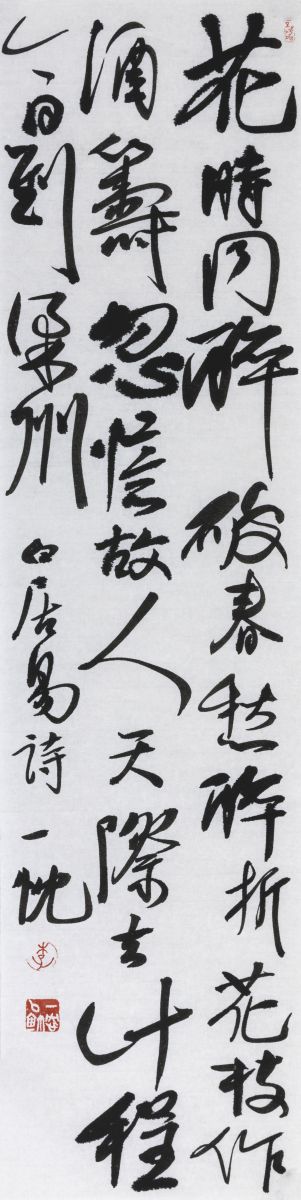 花時同醉破春愁醉折花枝作
酒籌忽憶故人天際去計程
今日到梁州 白居易詩 一忱
李